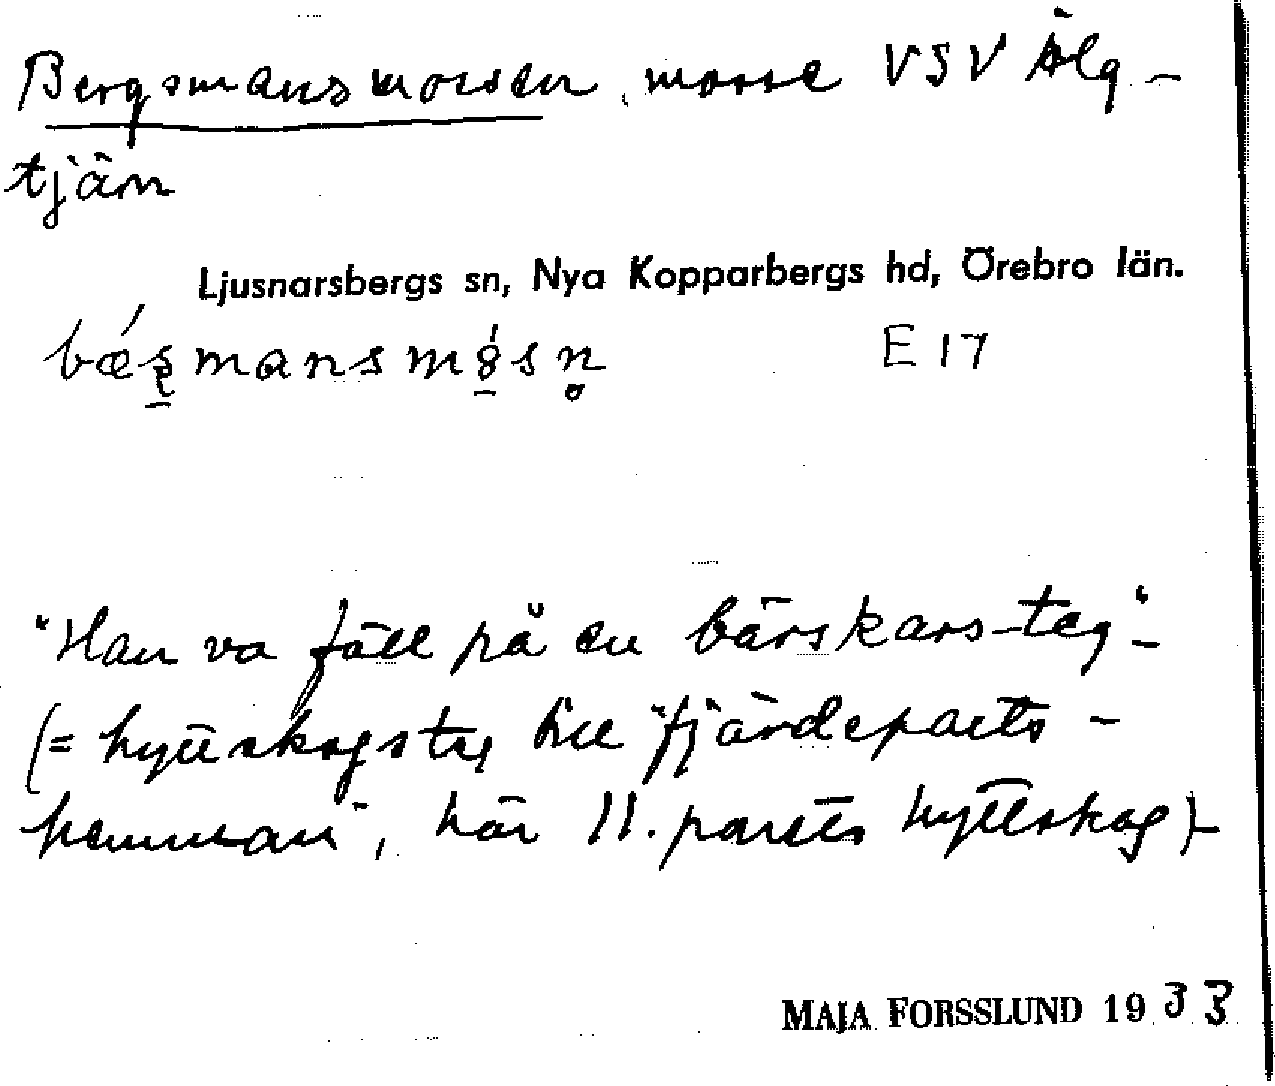 Bergsmansmossen, mosse VSV Älg-
tjärn
Ljusnarsbergs sn, Nya Kopparbergs hd, Örebro län.
E 17
"Han va fäll på en bärskars-teg"-
(= hyttskogsteg till "fjärdeparts-
hemman", här 11. partets hyttskog)-
MAJA FORSSLUND 1933